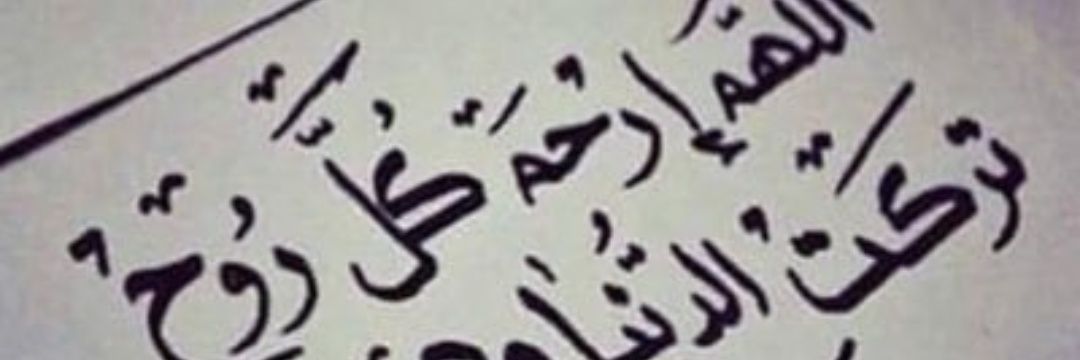 اللهم ارحم كل روح
تركت الدنيا